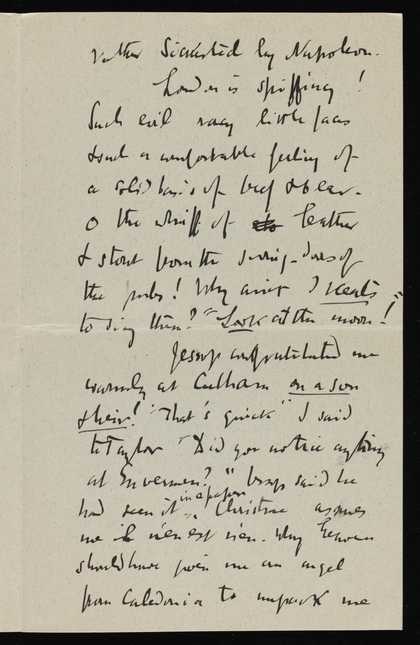 rather Sickested by Napoleon.
London is spiffing!
Such evil racy little faces
& such a comfortable feeling of
a solid basis of beef & beer.
O the whiff of leather
& stout from the swing-doors of
the pubs! Why aint I Keats
to sing them? "Look at the moon!"
Jessop congratulated me
warmly at Culham on a son
& heir! "That's quick" I said
to Taylor "Did you notice anything
at Inverness?" Jessop said he
had seen it in a paper. Christine assures
me. Why heaven
should have given me an angel
from Caledonia to me